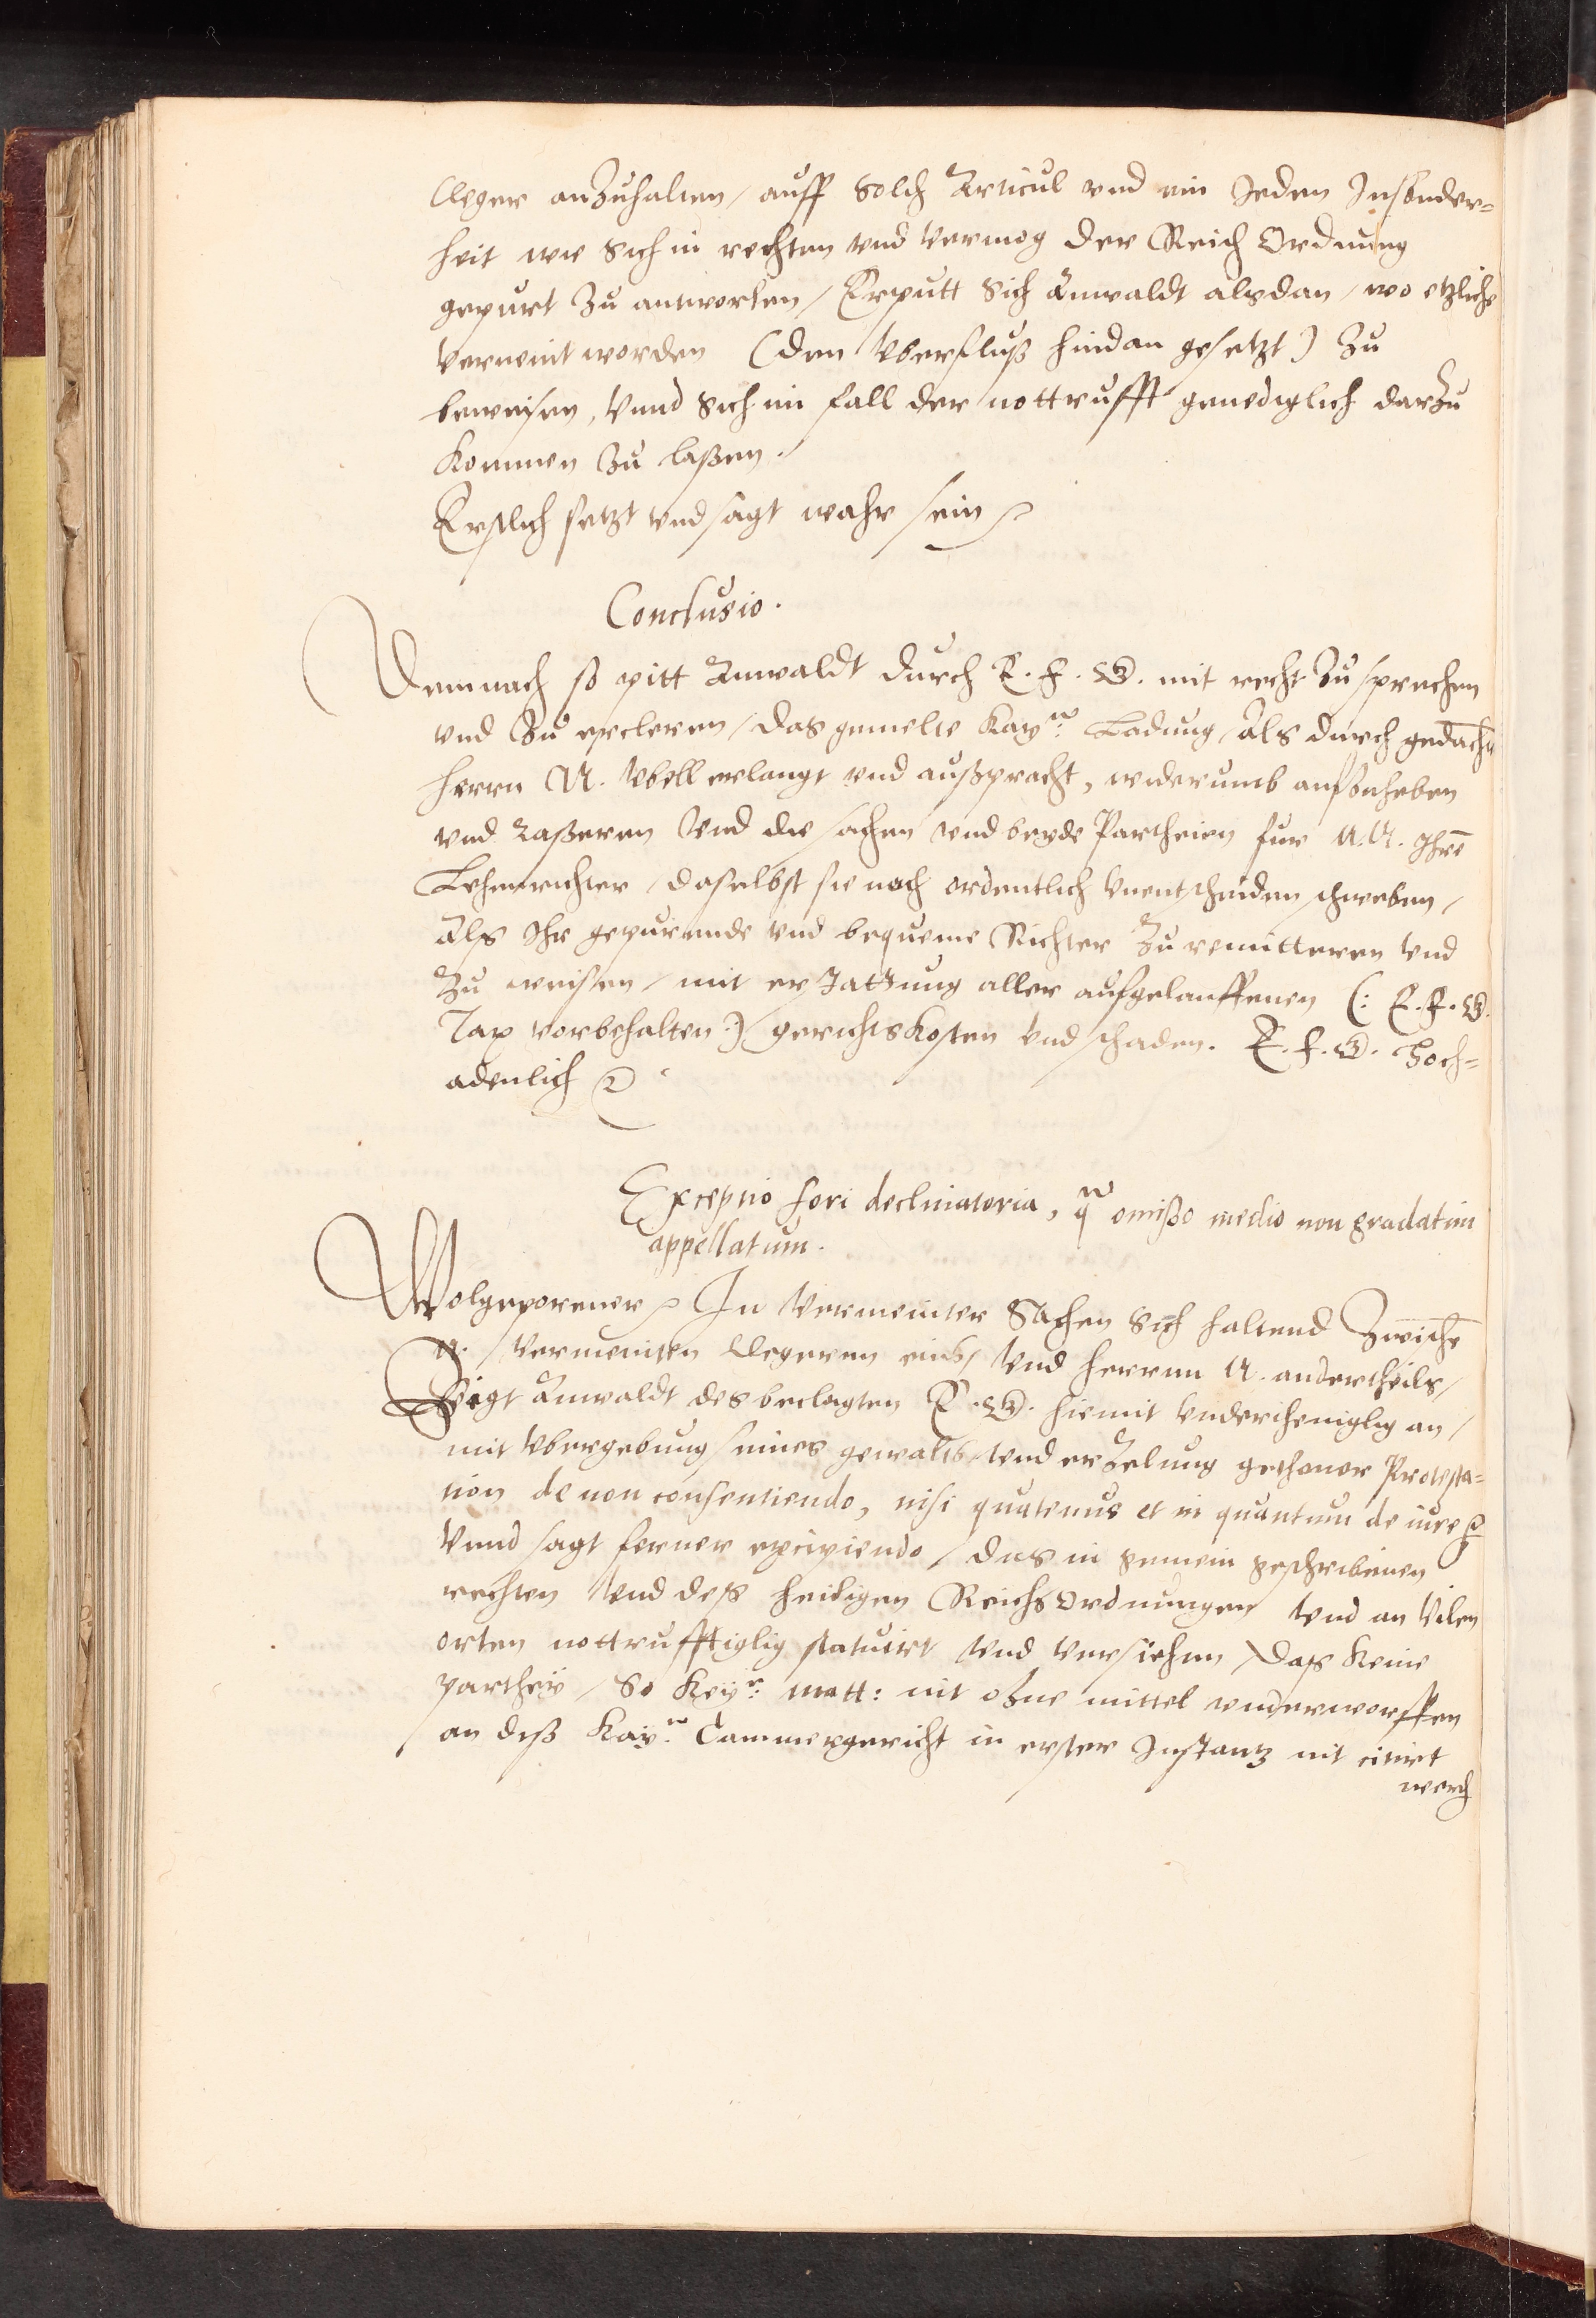 Cleger anzuhalten / auff solch Articul vnd ein Jeden Jnsonder=
heit wie sich in rechten vnd vermog der Reich Ordnung
gepurt zu antworten / Erputt sich Anwaldt alsdan / wo etzliche
verneint worden (den vberfluß hindan gesetzt) zu
beweisen, Vnnd sich im fall der nottrufft genediglich darzu
kommen zu laßen.
Erstlich setzt vnd sagt wahr sein
Conclusio.
Demnach so pitt Anwaldt durch E. F. G. mit recht zu sprechen
vnd zu ercleren / das gemelte Kay.e Ladung, als durch gedachtn
herrn N. vbell erlangt vnd außpracht, widerumb aufzuheben
vnd Caßeren vnd die sachen vnd beyde Partheien fur N. N. Jhre
Lehenrichter / daselbst sie noch ordentlich vnentscheiden schweben /
als Jhr gepurende vnd bequeme Richter zu remitteren vnd
zu weisen / mit erstattung aller aufgelauffenen (: E. F. G.
Tax vorbehalten :) gerichtskosten vnd schaden. E. F. G. Hoch=
adenlich
Exceptio fori declinatoria, q omißo medio non gradatim
appellatum.
Wolgeporener In vermeinter Sachen sich haltend zwische
N. vermeinten Clegeren eins / vnd herrnn N. andertheils /
Zeigt Anwaldt des beclagten E. G. hiemit vndertheniglig an /
mit vbergebung seines gewalts vnd erzelung gethoner Protesta=
tion de non consentiendo, nisi quatenus et in quantum de iure
Vnnd sagt ferner excipiendo / das in gemein geschribenen
rechten vnd deß heiligen Reichs Ordnungen vnd an vilen
orten nottrufftiglig statuirt vnd versiehen / das keine
parthey / so Key.r Matt: nit ohne mittel vnderworffen
an diß Kay. Cammergericht in erster Jnstantz nit citirt
werd